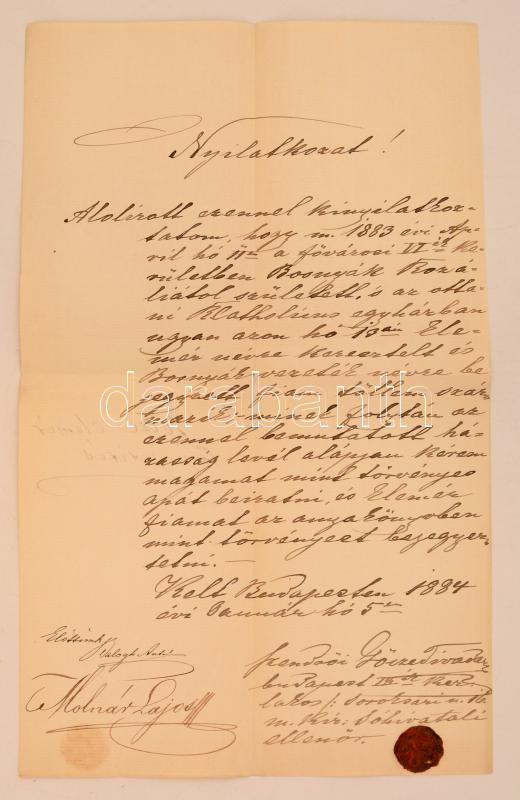 Nyilatkozat!
Alolirott ezennel kinyilatkoz-
tatom, hogy m. 1883 évi Áp-
ril hó 11én a fővárosi VI ik Ke-
rületben Bosnyák Rozá-
liától született, s az otta-
ni Katholicus egyházban
ugyan azon hó 15én Ele-
mér névre keresztelt és
Bosnyák vezeték névre be
jegyzett fiam tőlem szár-
mazik minek folytán az
ezennel bemutatott há-
zasság levél alapján kérem
magamat mint törvényes
apát beiratni, és Elemér
fiamat az anyakönyvben
mint törvényest bejegyez-
tetni.—
Kelt Budapesten 1884
évi Január hó 5én
Előttünk
Balogh Antal
Molnár Lajos
Budapest IX ik Ker
lakos /: Soroksári u.
m. kir: Sóhivatali
ellenőr.
darabanth